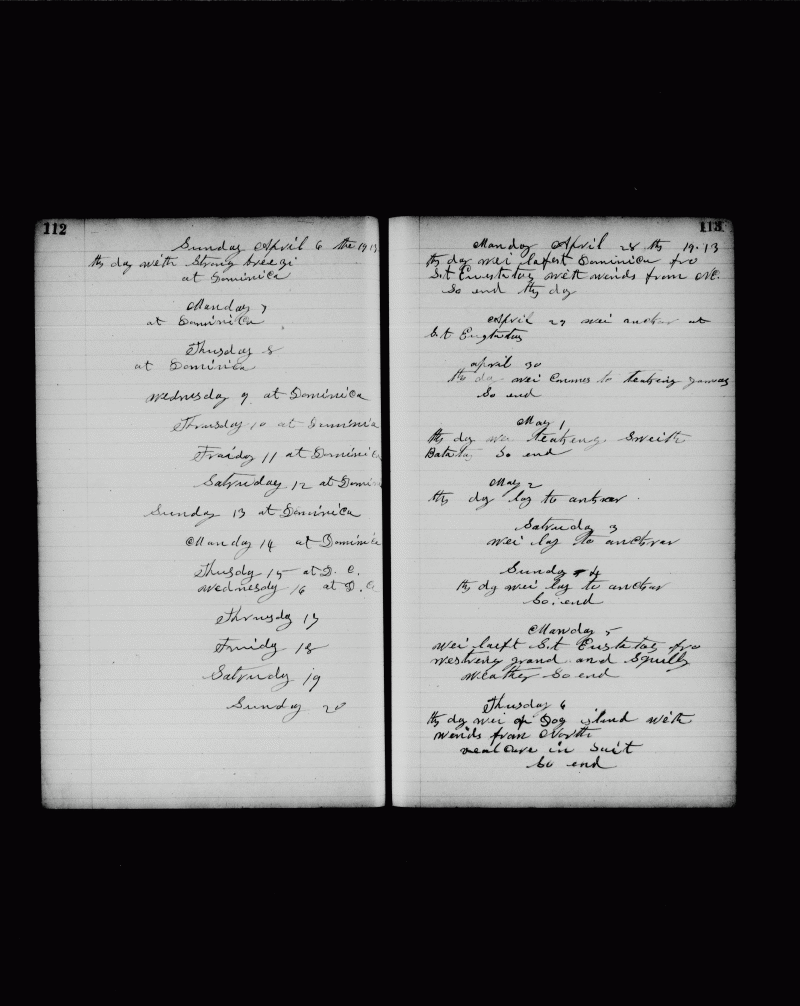 112
Sunday April 6 the 1913
ths day with Strong breezi
at Dominica
Manday 7
at Dominica
Thusday 8
at Dominica
Wednusday 9 at Dominica
Thrusday 10 at Dominica
Fraidy 11 at Dominica
Satruday 12 at Dominica
Sunday 13 at Dominica
Manday 14 at Dominica
Thusdy 15 at D. C.
Wednesdy 16 at D. C
Thrusdy 17
Fruidy 18
Satrudy 19
Sunday 20
113
Manday April 28 th 19.13
ths day wei lafest Dominica fro
S.t Eustatas with winds from NE.
So end ths day
April 29 wei anchar at
S.t Eustatas
april 30
ths day wei Commes to
So end
May 1
ths day wei
So end
May 2
ths day lay to
Satruday 3
wei lay to anchrar
Sunday 4
ths dy wei lay to anchar
So end
Manday 5
wei laeft S.t Eustatas fro
grand and Squelly
Weather So end
Thusday 6
ths dy wei of Dog island with
winds from North
in Suit
So end